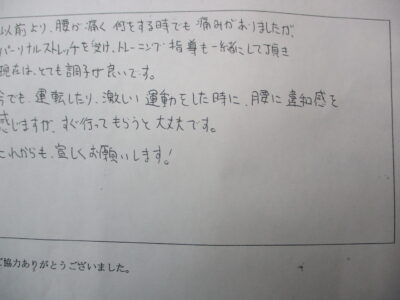 以前より、腰が痛く何をする時でも痛みがありましたが、
パーソナルストレッチを受け、トレーニング指導も一緒にして頂き
現在は、とても調子が良いです。
今でも、運転したり、激しい運動をした時に、腰に違和感を
感じますが、すぐ行ってもらうと大丈夫です。
これからも、宜しくお願いします!
ご協力ありがとうございました。